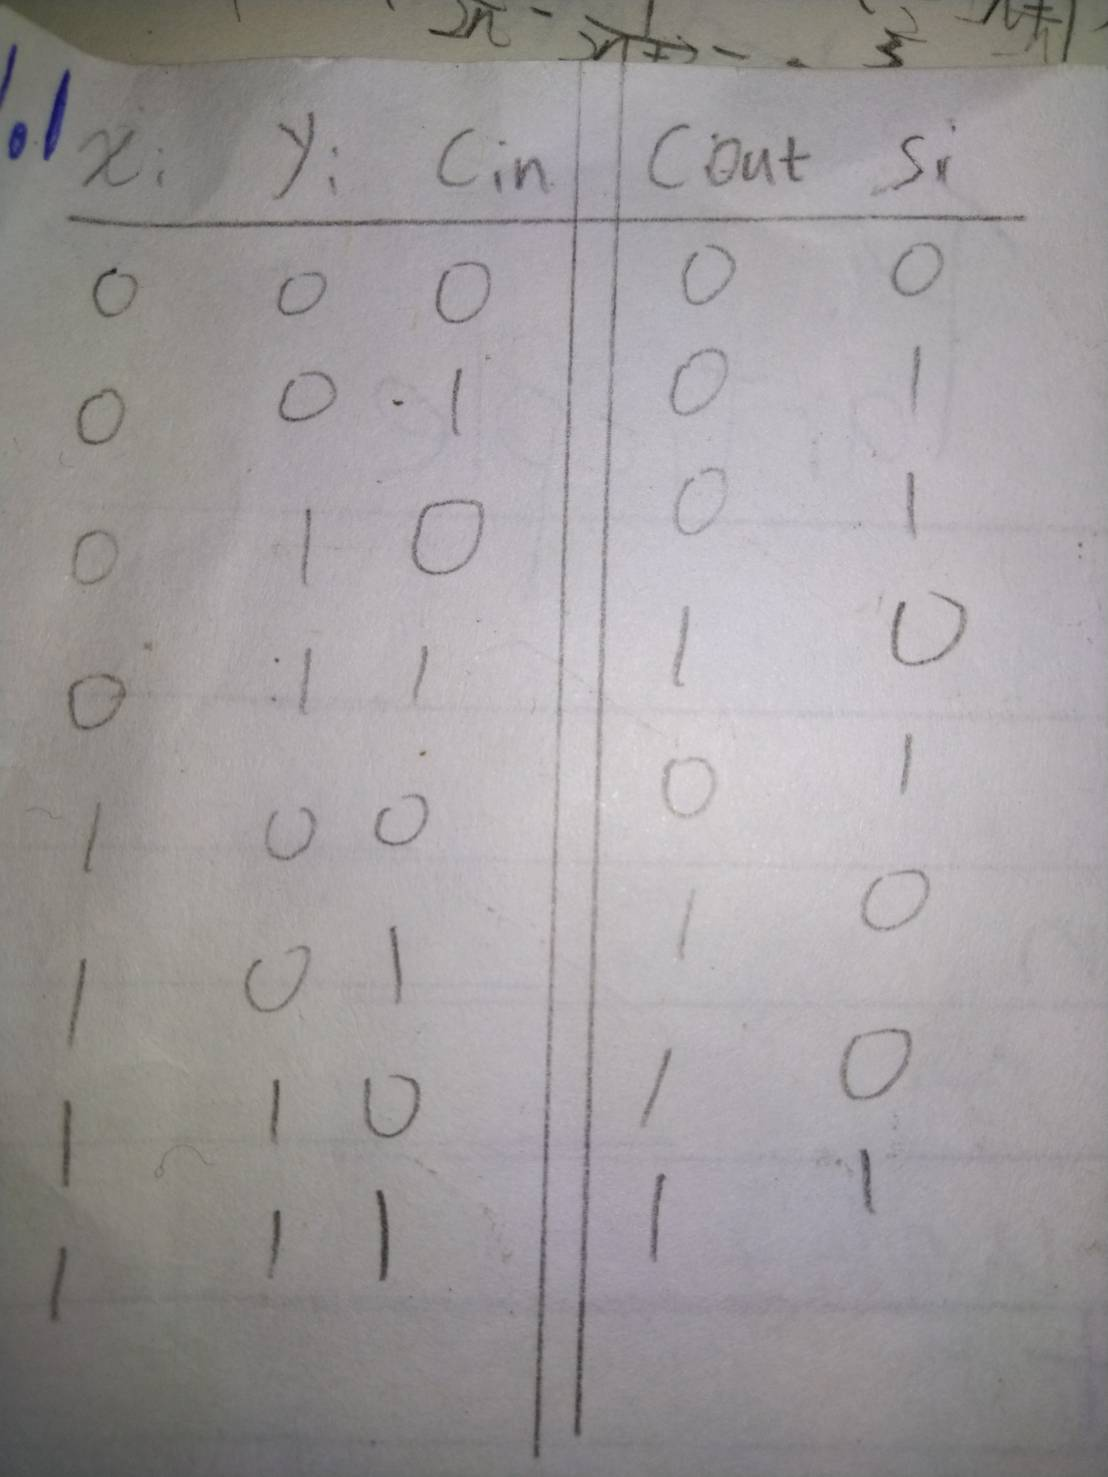 1.1
xi yi Cin Cout si
0 0 0 0 0
0 0 1 0 1
0 1 0 0 1
0 1 1 1 0
1 0 0 0 1
1 0 1 1 0
1 1 0 1 0
1 1 1 1 1